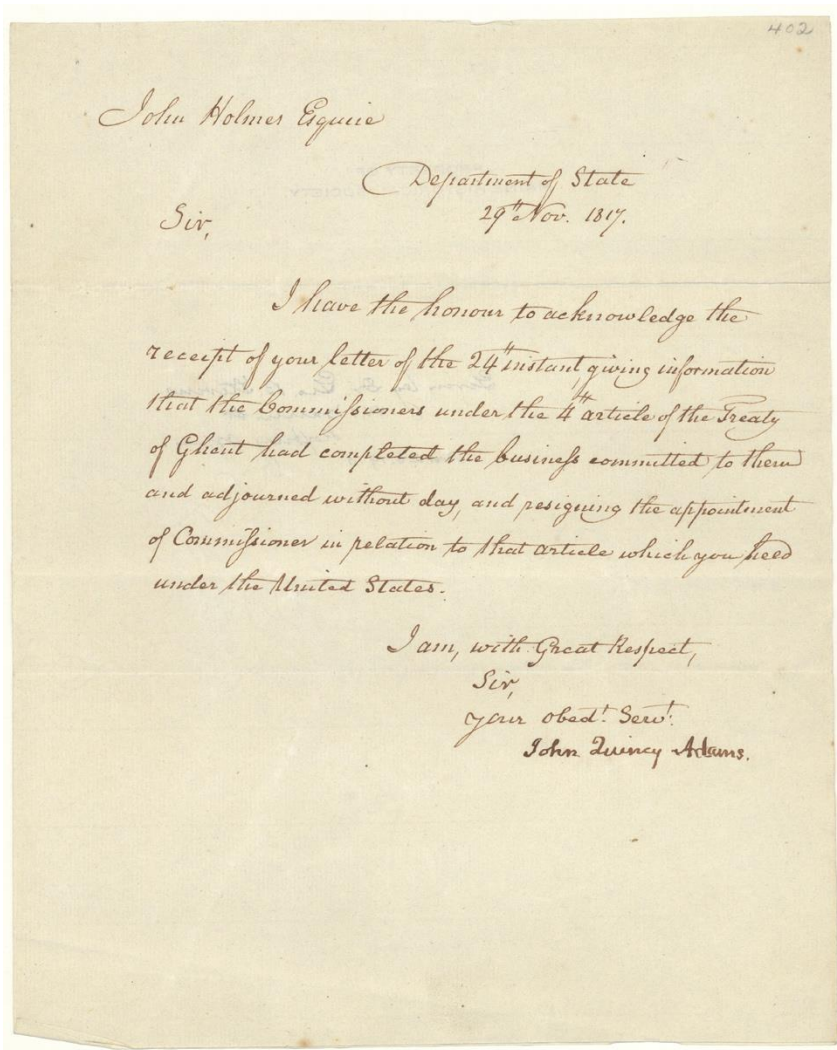 402
John Holmes Esquire
Department of State
29th Nov. 1817.
Sir,
I have the honour to acknowledge the
receipt of your letter of the 24th instant, giving information
that the Commissioners under the 4th article of the Treaty
of Ghent had completed the business committed to them
and adjourned without day, and resigning the appointment
of Commissioner in relation to that article which you held
under the United States.
I am, with Great Respect,
Sir,
your obedt. Servt.
John Quincy Adams.